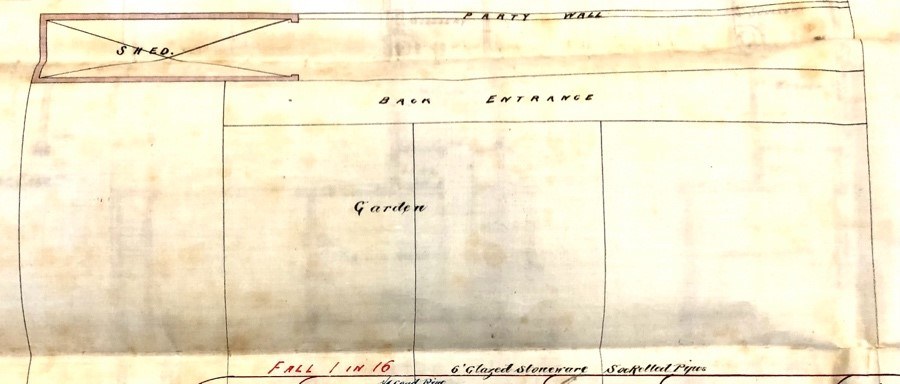 PARTY WALL
SHED.
BACK ENTRANCE
Garden
FALL 1 IN 16 6" Glazed Stoneware Socketted Pipes